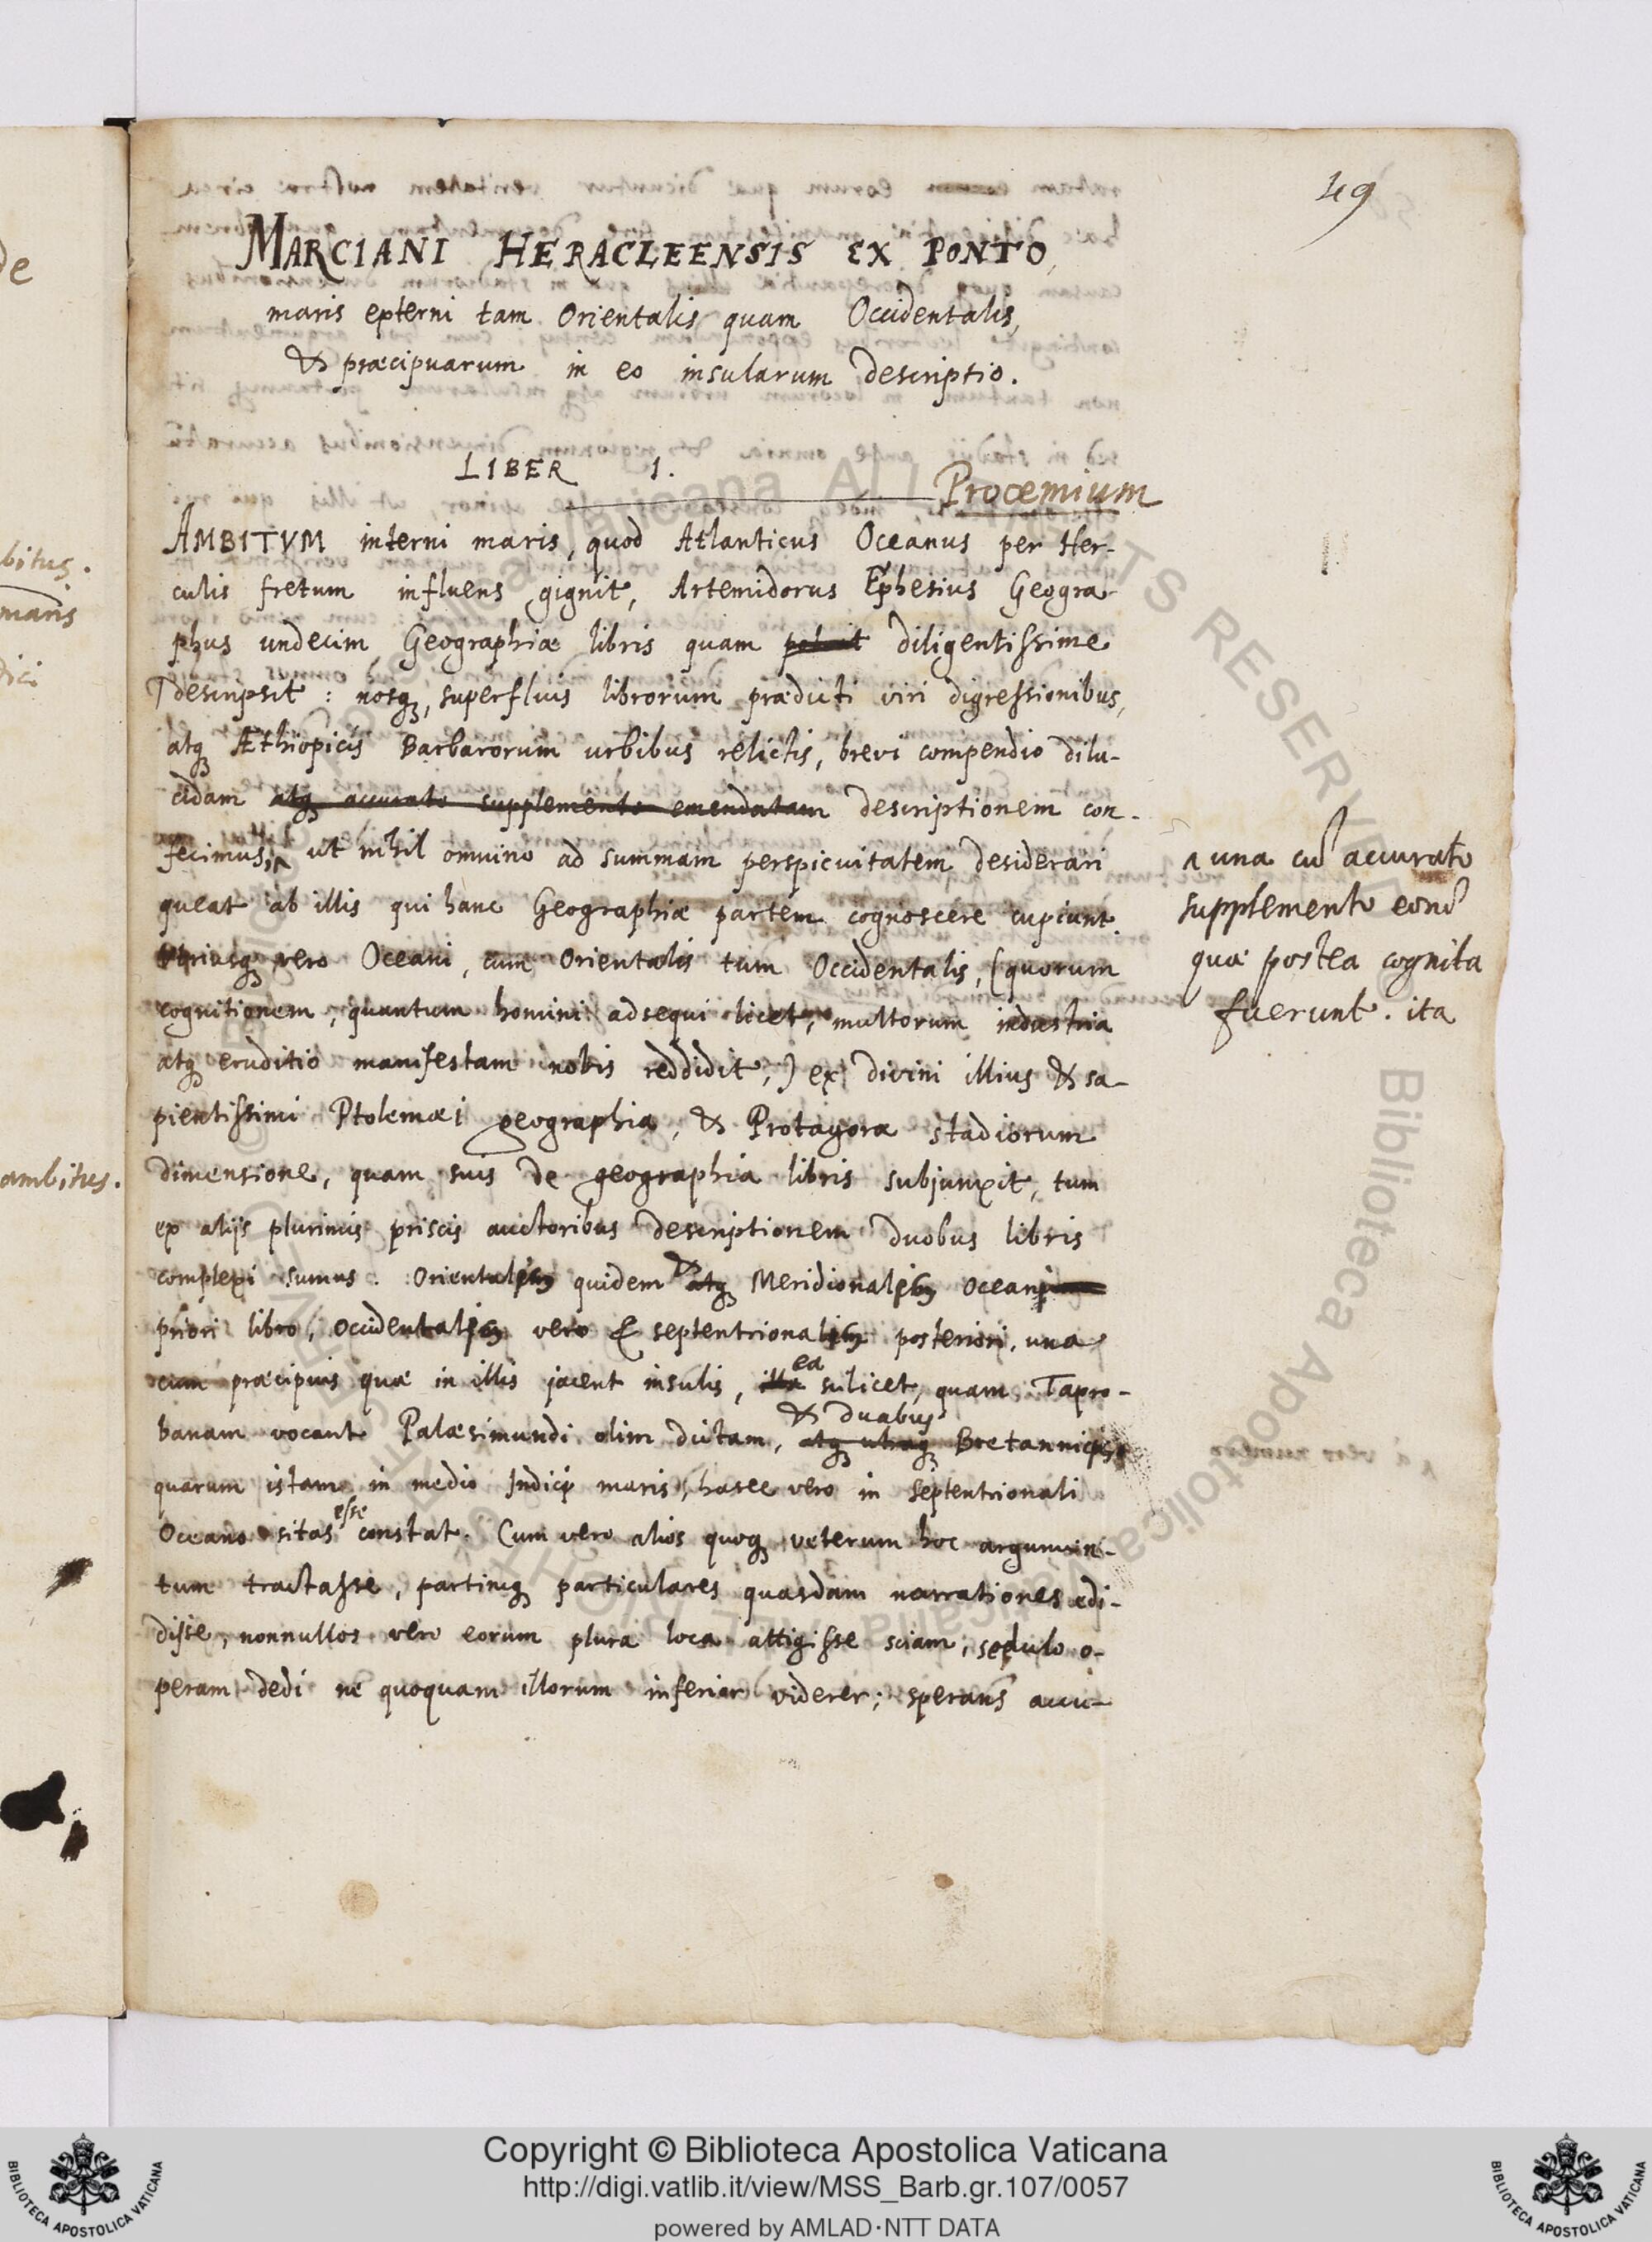 49
MARCIANI HERACLEENSIS EX PONTO,
maris externi tam Orientalis quam Occidentalis,
& præcipuarum in eo insularum descriptio.
LIBER 1.
Proœmium
AMBITVM interni maris, quod Atlanticus Oceanus per Her-
culis fretum influens gignit, Artemidorus Ephesius Geogra-
phus undecim Geographiæ libris quam potuit diligentissime
descripsit: nosq, superfluis librorum prædicti viri digressionibus,
atq Æthiopicis Barbarorum urbibus relictis, brevi compendio dilu-
cidam atq accurato supplemento emendatam descriptionem con-
fecimus, ^ ut nihil omnino ad summam perspicuitatem desiderari
^ una cū accurato
supplemento eorū
quæ postea cognita
fuerunt. ita
queat ab illis qui hanc Geographiæ partem cognoscere cupiunt.
Utriusq vero Oceani, cum Orientalis tum Occidentalis, (quorum
cognitionem, quantum homini adsequi licet, multorum industria
atq eruditio manifestam nobis reddidit,) ex divini illius & sa-
pientissimi Ptolemæi geographia, & Protagoræ stadiorum
dimensione, quam suis de geographia libris subjunxit, tum
ex alijs plurimis priscis auctoribus descriptionem duobus libris
complexi sumus. quidem & atq
priori libro, vero & posteriori, una
cum præcipuis quæ in illis jacent insulis, illa ea scilicet, quam Tapro-
banam vocant Palæsimundi olim dictam, atq utraq & duabus
quarum istam in medio Indici maris, hasce vero in Septentrionali
Oceano sitas esse constat. Cum vero alios quoq veterum hoc argumen-
tum tractasse, partimq particulares quasdam narrationes edi-
disse, nonnullos vero eorum plura loca attigisse sciam, sedulo o-
peram dedi ne quoquam illorum inferior viderer; sperans accu-
de
bitus.
maris
dici
ambitus.
Copyright © Biblioteca Apostolica Vaticana
http://digi.vatlib.it/view/MSS_Barb.gr.107/0057
powered by AMLAD·NTT DATA
BIBLIOTECA APOSTOLICA VATICANA
BIBLIOTECA APOSTOLICA VATICANA